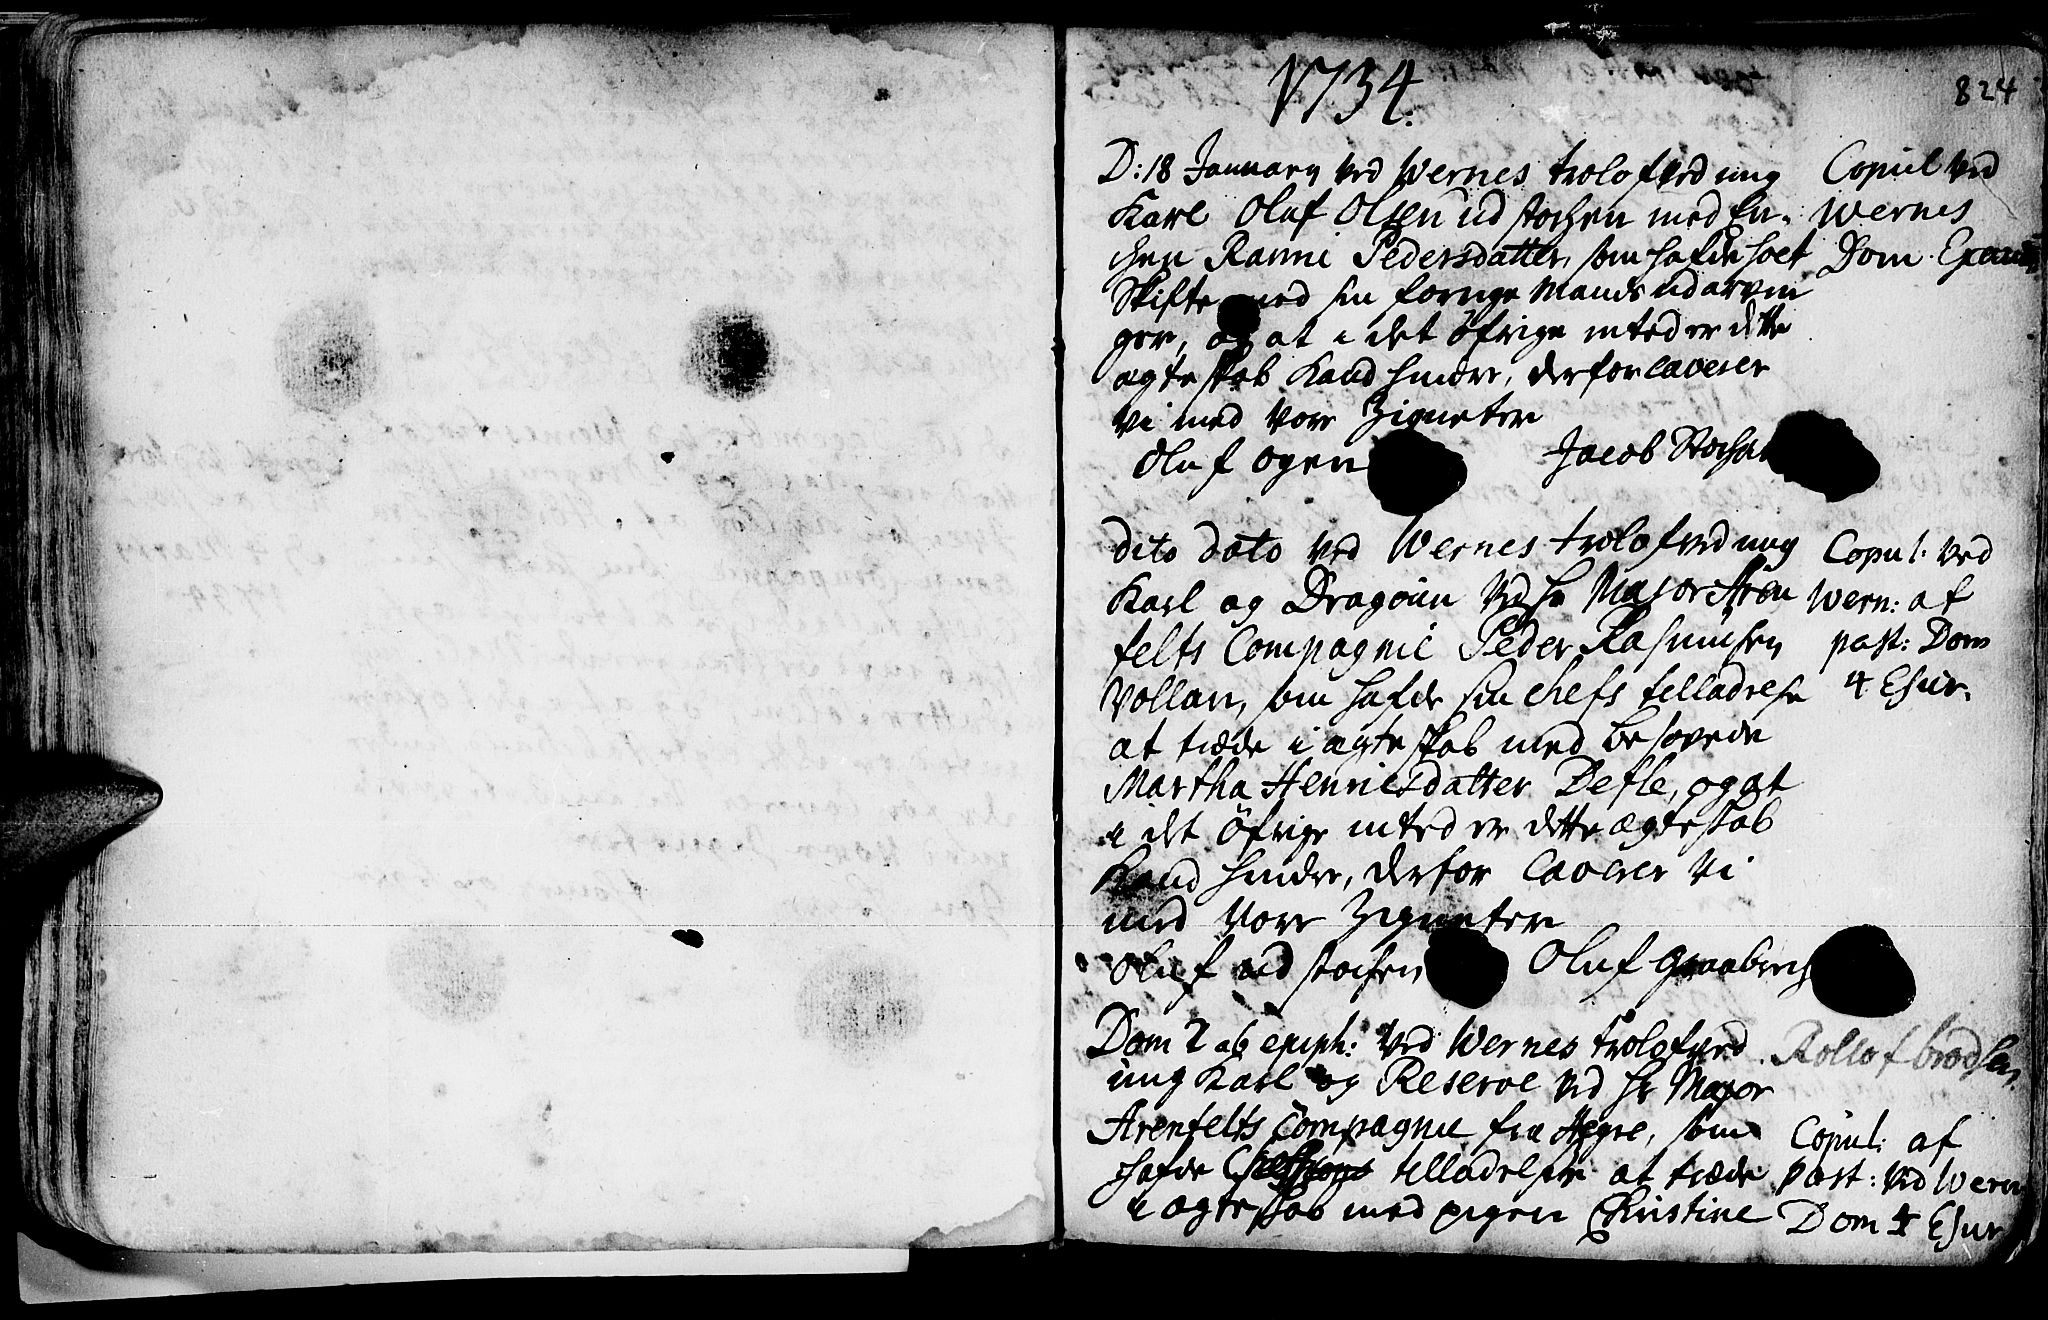 1734.
824
D: 18 January ved Wernes trolofved ung
Karl Oluf Olsen udstochen med En-
chen Ranni Pedersdatter, som hafde hoet
Skifte med sin forrige Mands udarvin
ger, og at i det öfrige inted er dette
ægteskab kand hindre, derfor caverer
vi med vore Zigneter
Oluf ogen Jacob Stochen
Copul ved
Wernes
Dom. Exaudi
dito dato ved Wernes trolofved ung
Karl og Dragoun ved hr Major Aren
felts Compagnie Peder Rasmusen
Vollan, som hafde sin chefs tilladelse
at træde i ægteskab med besovede
Martha Henricsdatter Defle, og at
i det öfrige inted er dette ægteskab
kand hindre, derfor caverer vi
med vore Zigneter
Oluf udstochen Oluf Graabrech
Copul: ved
Wern: af
past: Dom
4 Esur.
Dom 2 ab epiph: ved Wernes trolofved
ung Karl og Reserve ved hr Major
Arenfelts Compagnie fra Hegre, som
hafde tilladelse at træde
i ægteskab med pigen Christine
Rollof brodsen
Copul: af
past: ved Wern
Dom 4 Esur